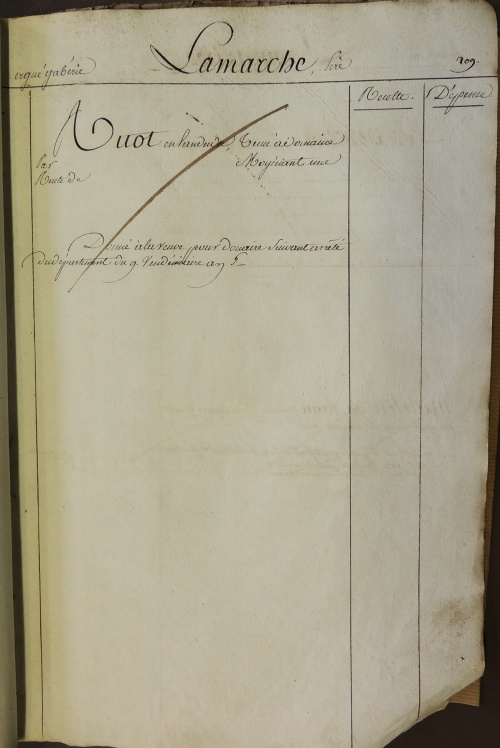 ergué gabérie Lamarche, Père 209.
Recette. Dépense
Ruot en handudu, Tenu à domaine
Par Moyénant une
Rente de
Donné à la veuve pour douaire Suivant arrêté
du département du 9. Vendémiaire an 5